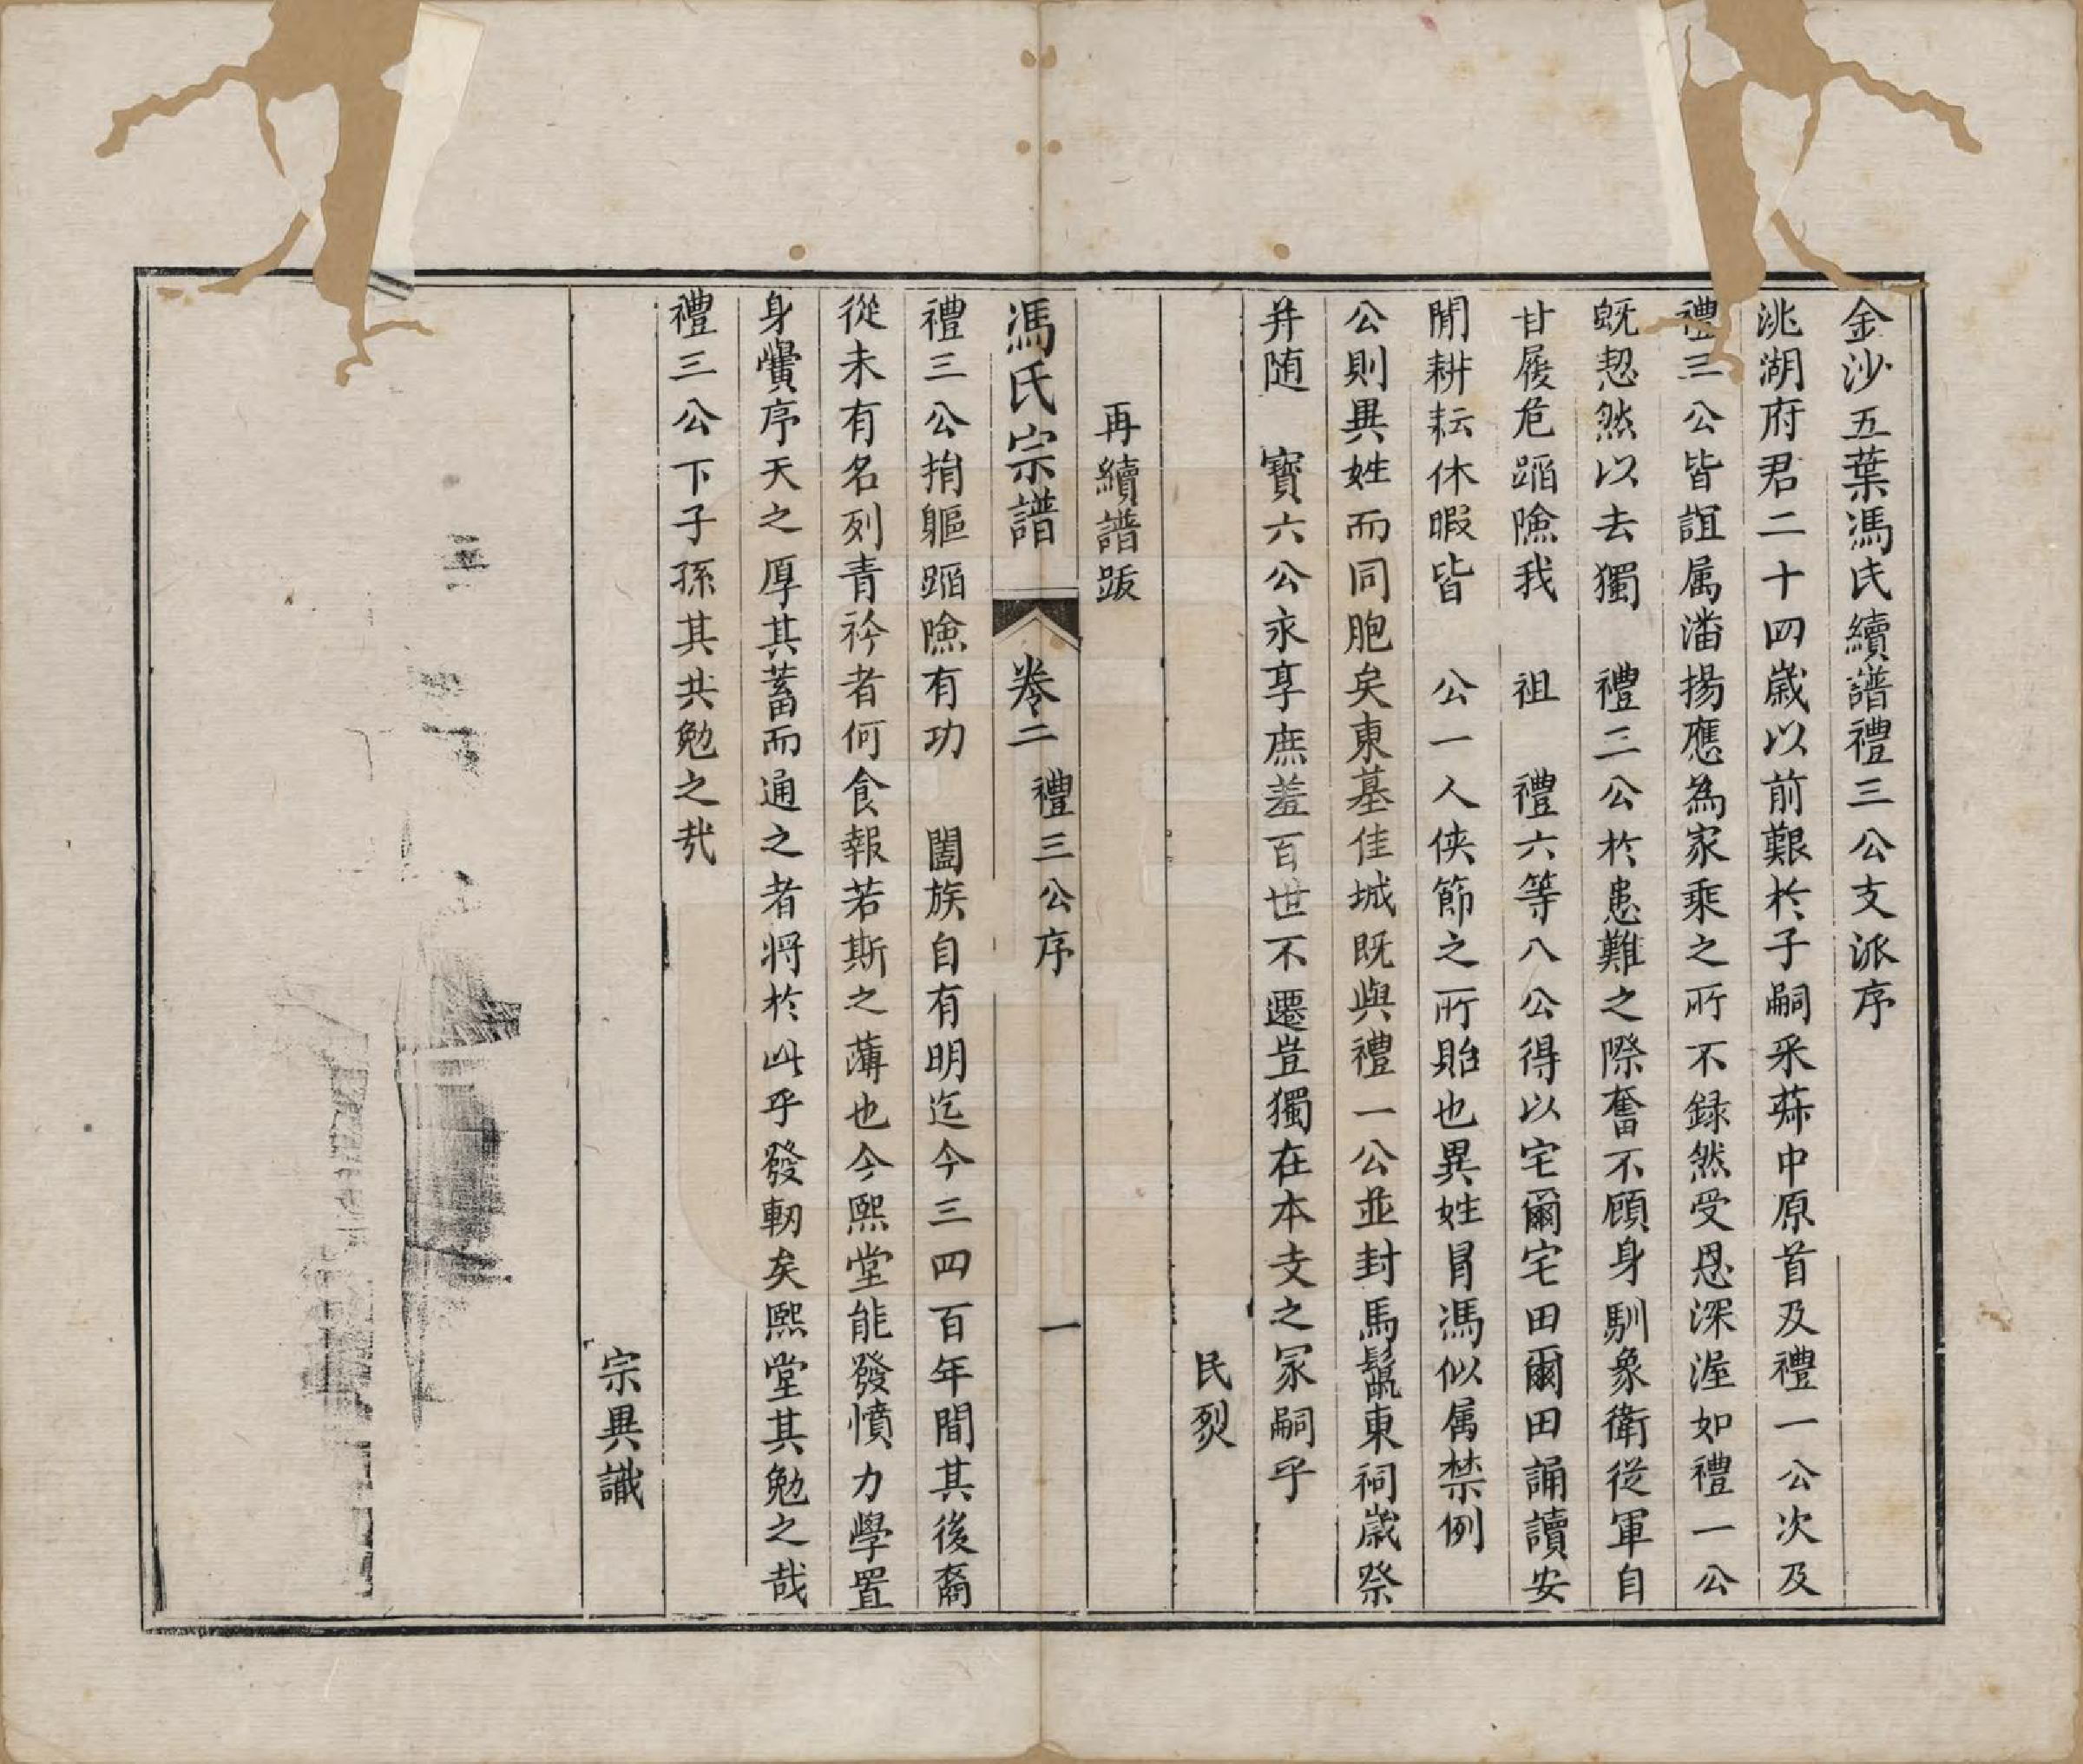 金沙五葉馮氏續譜禮三公支派序
洮湖府君二十四歲以前艱於子嗣采菾中原首及禮一公次及
禮三公皆誼属潘揚應為家乘之所不録然受恩深渥如禮一公
既恝然以去獨　禮三公於患難之際奮不顧身馴象衛從軍自
甘履危蹈險我　祖　禮六等八公得以宅爾宅田爾田誦讀安
閒耕耘休暇皆　公一人俠節之所貽也異姓冒馮似属禁例
公則異姓而同胞矣東墓佳城既與禮一公並封馬鬣東祠歲祭
并随　寶六公永享庶羞百世不遷豈獨在本支之冢嗣乎
民烈
再續譜跋
馮氏宗譜　卷二　禮三公序　一
禮三公捐軀蹈險有功　闔族自有明迄今三四百年間其後裔
從未有名列青衿者何食報若斯之薄也今熙堂能發憤力學置
身黌序天之厚其蓄而通之者将於此乎發軔矣熙堂其勉之哉
禮三公下子孫其共勉之哉
宗異識